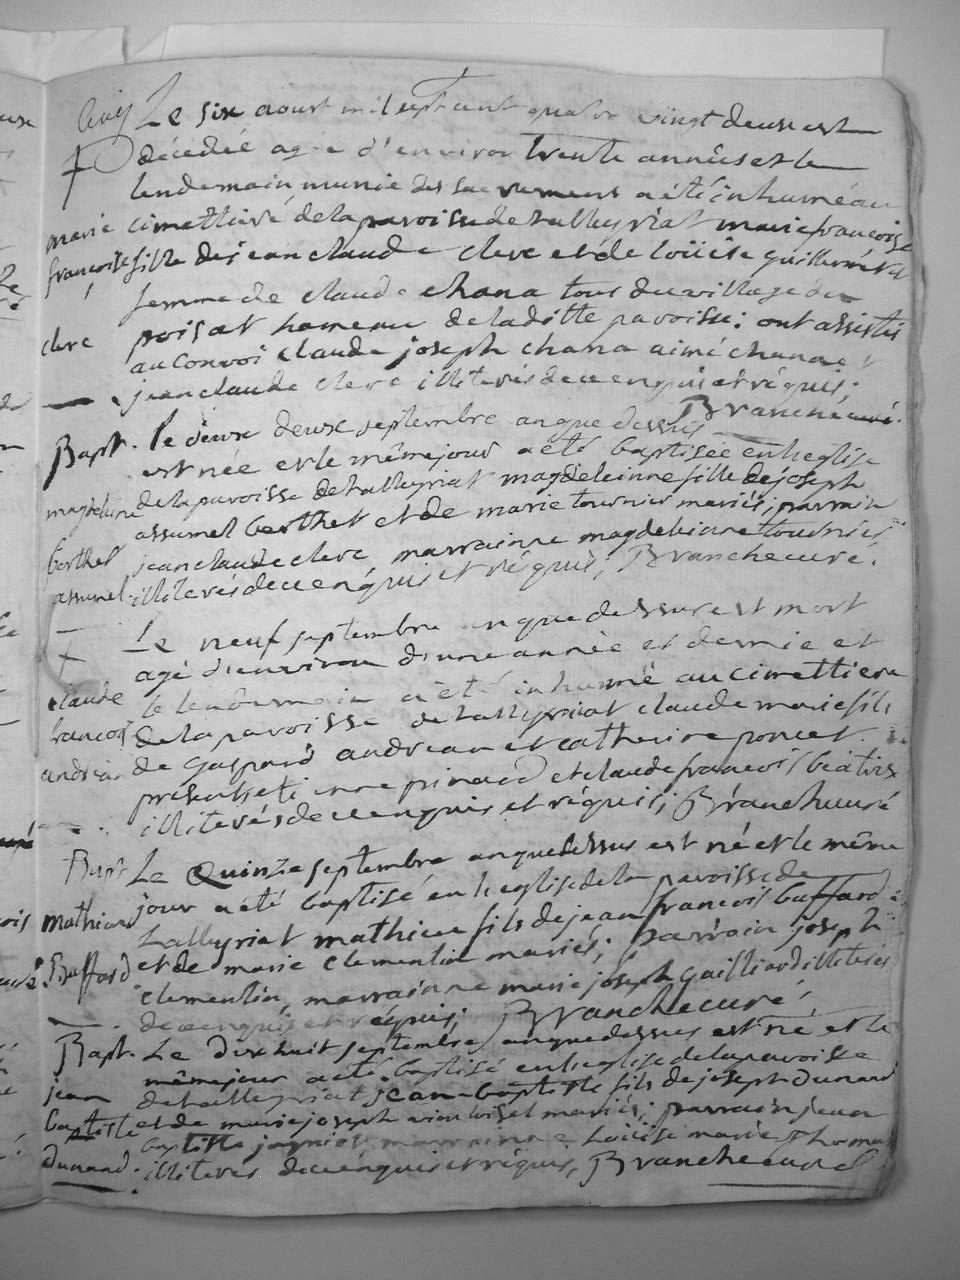 Le six aoust mil sept cent quatre vingt deux est
décédée agée d'environ trente années et le
lendemain munie des sacremens a été inhumée au
marie cimettiere de la paroisse de tallissyriat marie francoise
françoise fille de jean claude clerc et de loüise guillermet
femme de claude chana tous du village de
clerc poisat hameau de la ditte paroisse: ont assistés
au convoi claude joseph chana aimé chana et
jean claude clerc illiterés de ce enquis et réquis;
Branche curé.
Bapt. le deux septembre an que dessus
est née et le même jour a été baptisée en l'eglise
magdeleine de la paroisse de tallissyriat magdeleinne fille de joseph
assumel berthet et de marie tournier mariés; parrain
berthet jean claude clerc marrainne magdeleinne tournier
assumel. illiterés de ce enquis et réquis; Branche curé.
Le neuf septembre an que dessus est mort
agé d'environ d'une année et demie et
claude le lendemain a été inhumé au cimettiere
francois de la paroisse de tallissyriat claude marie fils
andréan de gaspard andréan et catherine poncet.
présents et claude francois
illiterés de ce enquis et réquis; Branche curé
Bapt. Le Quinze septembre an que dessus est né et le même
jour a été baptisé en l'eglise de la paroisse de
mathieu tallissyriat mathieu fils de jean francois buffard
Buffard et de marie clementin mariés; parrain joseph
clementin, marrainne marie joseph gailliard illiterés
de ce enquis et réquis; Branche curé.
Bapt. Le dix huit septembre an que dessus est né et le
même jour a été baptisé en l'eglise de la paroisse
jean de tallissyriat jean-baptiste fils de joseph Dunand
baptiste et de marie joseph mariés; parrain jean
baptiste marrainne Loüise marie thomas
Dunand. illiterés de ce enquis et réquis, Branche curé